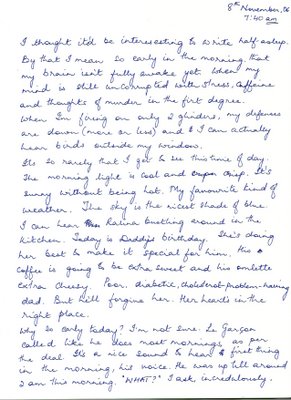 8th November, 06
7:40 am
I thought it'd be interesting to write half-asleep.
By that I mean so early in the morning that
my brain isn't fully awake yet. When my
mind is still uncorrupted with stress, caffeine
and thoughts of murder in the first degree.
When I'm firing on only 2 cylinders, my defenses
are down (more or less) and I can actually
hear birds outside my window.
Its so rarely that I get to see this time of day.
The morning light is cool and crisp. It's
sunny without being hot. My favourite kind of
weather. The sky is the nicest shade of blue.
I can hear Ralina bustling around in the
kitchen. Today is Daddy's birthday. She's doing
her best to make it special for him. His
coffee is going to be extra sweet and his omlette
extra cheesy. Poor, diabetic, cholesterol-problem-having
dad. But he'll forgive her. Her heart's in the
right place.
Why so early today? I'm not sure. Le Garçon
called like he does most mornings, as per
the deal. It's a nice sound to hear first thing
in the morning, his voice. He was up till around
2 am this morning. "WHAT?" I ask, incredulously.